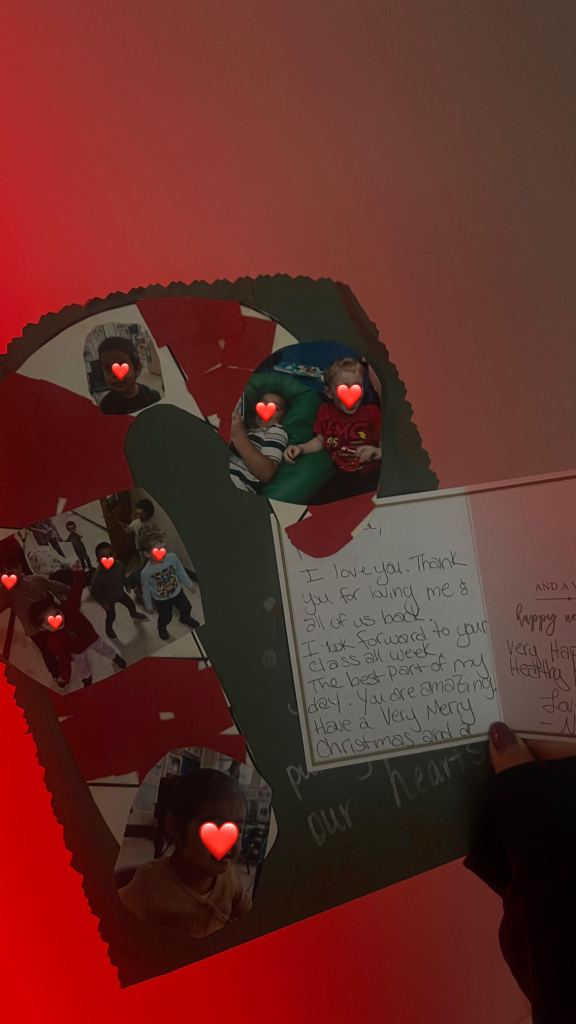 I love you. Thank
you for loving me &
all of us back.
I look forward to your
class all week.
The best part of my
day. You are amazing.
Have a Very Merry
Christmas and a
AND A
happy ne
Very Hap
Healthy
Lov
our hearts
95